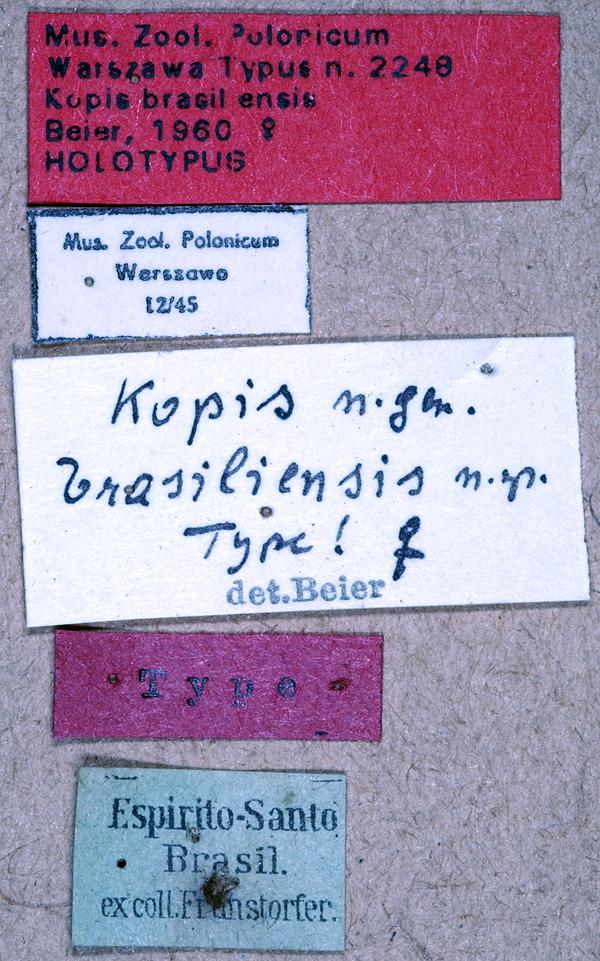 Mus. Zool. Polonicum
Warszawa Typus n. 2248
Kopis brasil ensis
Beier, 1960 ♀
HOLOTYPUS
Mus. Zool. Polonicum
Warszawa
12/45
Kopis n. gen.
brasiliensis n. sp.
Type! ♀
det. Beier
Type
Espirito-Santo
Brasil.
ex coll. Fruhstorfer.